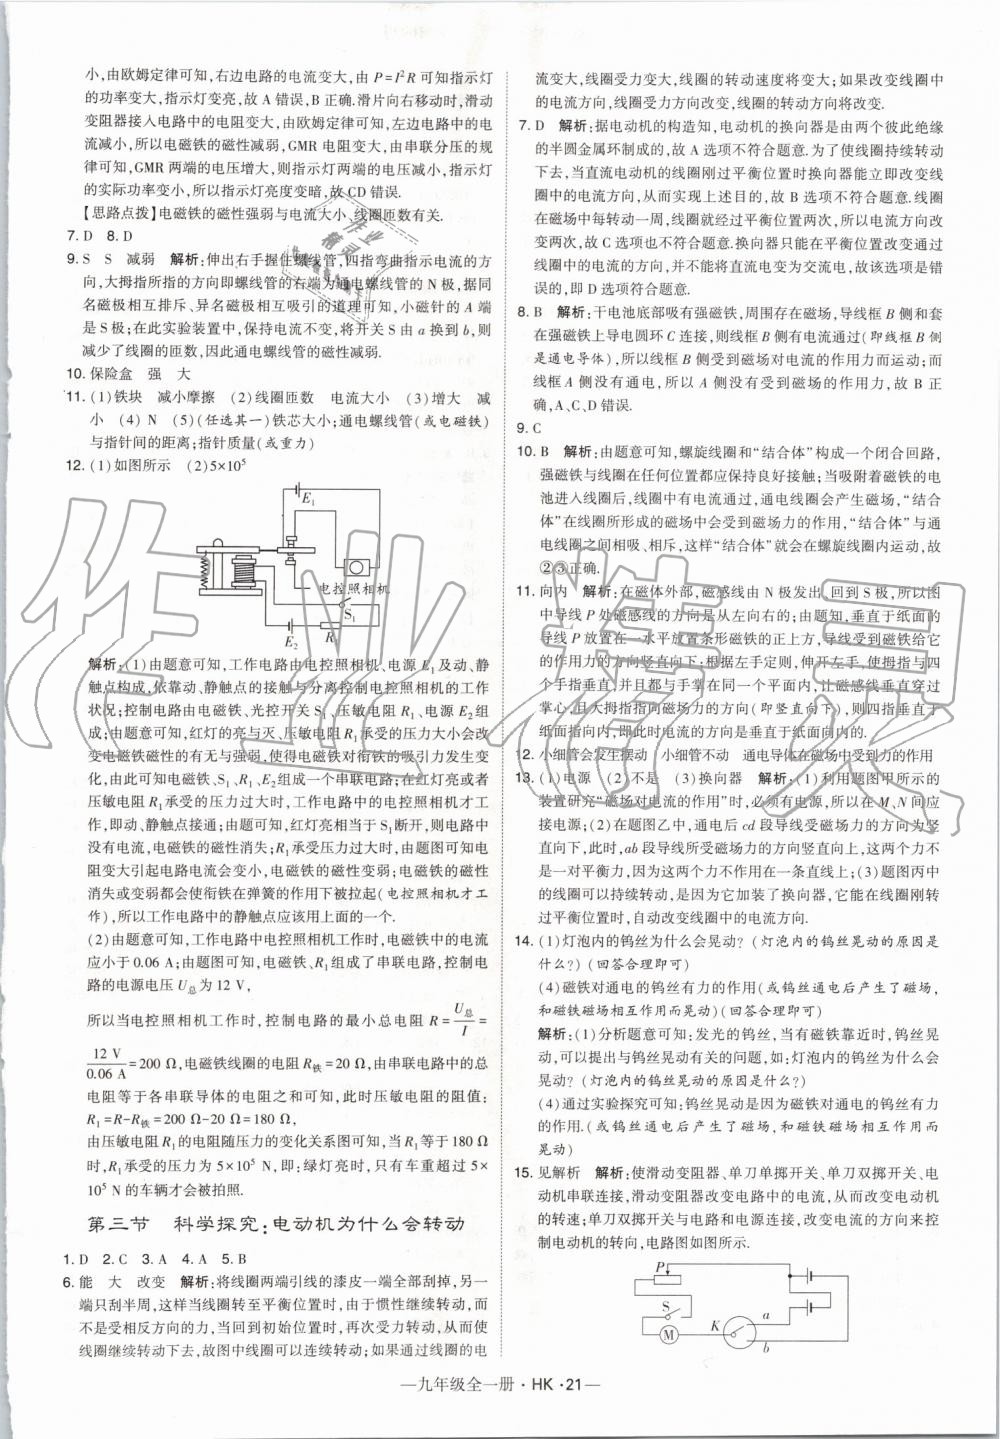 小,由欧姆定律可知,右边电路的电流变大,由 P=I²R 可知指示灯
的功率变大,指示灯变亮,故 A 错误,B 正确.滑片向右移动时,滑动
变阻器接入电路中的电阻变大,由欧姆定律可知,左边电路中的电
流减小,所以电磁铁的磁性减弱,GMR 电阻变大,由串联分压的规
律可知,GMR 两端的电压增大,则指示灯两端的电压减小,指示灯
的实际功率变小,所以指示灯亮度变暗,故 CD 错误.
【思路点拨】电磁铁的磁性强弱与电流大小、线圈匝数有关.
7. D 8. D
9. S S 减弱 解析:伸出右手握住螺线管,四指弯曲指示电流的方
向,大拇指所指的方向即螺线管的右端为通电螺线管的 N 极,据同
名磁极相互排斥、异名磁极相互吸引的道理可知,小磁针的 A 端
是 S 极;在此实验装置中,保持电流不变,将开关 S 由 a 换到 b,则
减少了线圈的匝数,因此通电螺线管的磁性减弱.
10. 保险盒 强 大
11. (1)铁块 减小摩擦 (2)线圈匝数 电流大小 (3)增大 减
小 (4) N (5)(任选其一)铁芯大小;通电螺线管(或电磁铁)
与指针间的距离;指针质量(或重力)
12. (1)如图所示 (2)5×10⁵
E₁
电控照相机
S₁
E₂ R₁
解析:(1)由题意可知,工作电路由电控照相机、电源 E₁及动、静
触点构成,依靠动、静触点的接触与分离控制电控照相机的工作
状况;控制电路由电磁铁、光控开关 S₁、压敏电阻 R₁、电源 E₂组
成;由题意可知,红灯的亮与灭、压敏电阻 R₁承受的压力大小会改
变电磁铁磁性的有无与强弱,使得电磁铁对衔铁的吸引力发生变
化,由此可知电磁铁、S₁、R₁、E₂组成一个串联电路;在红灯亮或者
压敏电阻 R₁承受的压力过大时,工作电路中的电控照相机才工
作,即动、静触点接通;由题可知,红灯亮相当于 S₁断开,则电路中
没有电流,电磁铁的磁性消失;R₁承受的压力过大时,由题图可知电
阻变大引起电路电流会变小,电磁铁的磁性变弱;电磁铁的磁性
消失或变弱都会使衔铁在弹簧的作用下被拉起(电控照相机才工
作),所以工作电路中的静触点应该用上面的一个.
(2)由题意可知,工作电路中电控照相机工作时,电磁铁中的电流
应小于 0.06 A;由题图可知,电磁铁、R₁组成了串联电路,控制电
路的电源电压 U总为 12 V,
所以当电控照相机工作时,控制电路的最小总电阻 R=U总/I=
12 V/0.06 A=200 Ω,电磁铁线圈的电阻 R铁=20 Ω,由串联电路中的总
电阻等于各串联导体的电阻之和可知,此时压敏电阻的阻值:
R₁=R-R铁=200 Ω-20 Ω=180 Ω,
由压敏电阻 R₁的电阻随压力的变化关系图可知,当 R₁等于 180 Ω
时,R₁承受的压力为 5×10⁵ N,即:绿灯亮时,只有车重超过 5×
10⁵ N 的车辆才会被拍照.
第三节 科学探究:电动机为什么会转动
1. D 2. C 3. A 4. A 5. B
6. 能 大 改变 解析:将线圈两端引线的漆皮一端全部刮掉,另一
端只刮半周,这样当线圈转至平衡位置时,由于惯性继续转动,而
不是受相反方向的力,当回到初始位置时,再次受力转动,从而使
线圈继续转动下去,故图中线圈可以连续转动;如果通过线圈的电
流变大,线圈受力变大,线圈的转动速度将变大;如果改变线圈中
的电流方向,线圈受力方向改变,线圈的转动方向将改变.
7. D 解析:据电动机的构造知,电动机的换向器由两个彼此绝缘
的半圆金属环制成的,故 A 选项不符合题意.为了使线圈持续转动
下去,当直流电动机的线圈刚转过平衡位置时换向器能立即改变线
圈中的电流方向,从而实现上述目的,故 B 选项不符合题意.线圈
在磁场中每转动一周,线圈就经过平衡位置两次,所以电流方向改
变两次,故 C 选项也不符合题意.换向器只能在平衡位置改变通过
线圈中的电流方向,并不能将直流电变为交流电,故该选项是错误
的,即 D 选项符合题意.
8. B 解析:干电池底部吸有强磁铁,周围存在磁场,导线框 B 侧和套
在强磁铁上导电圆环 C 连接,则线框 B 侧中有电流通过(即线框 B 侧
是通电导体),所以线框 B 侧受到磁场对电流的作用力而运动;而
线框 A 侧没有通电,所以没有受到磁场的磁力的作用,故 B 正
确,A、C、D 错误.
9. C
10. B 解析:由题意可知,螺旋线圈和“结合体”构成一个闭合回路,
强磁铁与线圈在任何位置都应保持良好接触;当吸附着磁铁的电
池进入线圈后,线圈中有电流通过,通电线圈会产生磁场,“结合
体”在线圈所形成的磁场中会受到磁场力的作用,“结合体”与通
电线圈之间相吸、相斥,这样“结合体”就会在螺旋线圈内运动,故
②③正确.
11. 向内 解析:在磁体外部,磁感线由 N 极发出,回到 S 极,所以图
中导线 P 处磁感线的方向是从左向右的;由题知,垂直于纸面的
导线 P 放置在一水平放置条形磁铁的正上方,导线受到磁铁给它
的作用力的方向竖直向下;根据左手定则,伸开左手,使拇指与四
个手指垂直,并且都与手掌在同一个平面内,让磁感线垂直穿过
掌心,且大拇指指磁场力的方向(即竖直向下),而四指垂直于
纸面指向内,即此时电流的方向是垂直于纸面向内的.
12. 小细管会发生摆动 小细管不动 通电导体在磁场中受到力的作用
13. (1)电源 (2)不是 (3)换向器 解析:(1)利用题图甲所示的
装置研究“磁场对电流的作用”时,必须有电源,所以在 M、N 间应
接电源;(2)在题图乙中,通电后 cd 段导线受磁场力的方向为竖
直向下,此时,ab 段导线所受磁场力的方向竖直向上,这两个力不
是一对平衡力,因为这两个力不作用在一条直线上;(3)题图丙中
的线圈可以持续转动,是因为它加装了换向器,它能在线圈刚转
过平衡位置时,自动改变线圈中的电流方向.
14. (1)灯泡内的钨丝为什么会晃动?(灯泡内的钨丝晃动的原因是
什么?)(回答合理即可)
(4)磁铁对通电的钨丝有力的作用(或钨丝通电后产生了磁场,
和磁铁磁场相互作用而晃动)(回答合理即可)
解析:(1)分析题意可知:发光的钨丝,当有磁铁靠近时,钨丝晃
动,可以提出与钨丝晃动有关的问题,如:灯泡内的钨丝为什么会
晃动?(灯泡内的钨丝晃动的原因是什么?)
(4)通过实验探究可知:钨丝晃动是因为磁铁对通电的钨丝有力
的作用.(或钨丝通电后产生了磁场,和磁铁磁场相互作用而
晃动)
15. 见解析 解析:使滑动变阻器、单刀单掷开关、单刀双掷开关、电
动机串联连接,滑动变阻器改变电路中的电流,从而改变电动机
的转速;单刀双掷开关与电路和电源连接,改变电流的方向来控
制电动机的转动方向,电路图如图所示.
P
S
M
K a
b
—九年级全一册·HK·21—
作业精灵